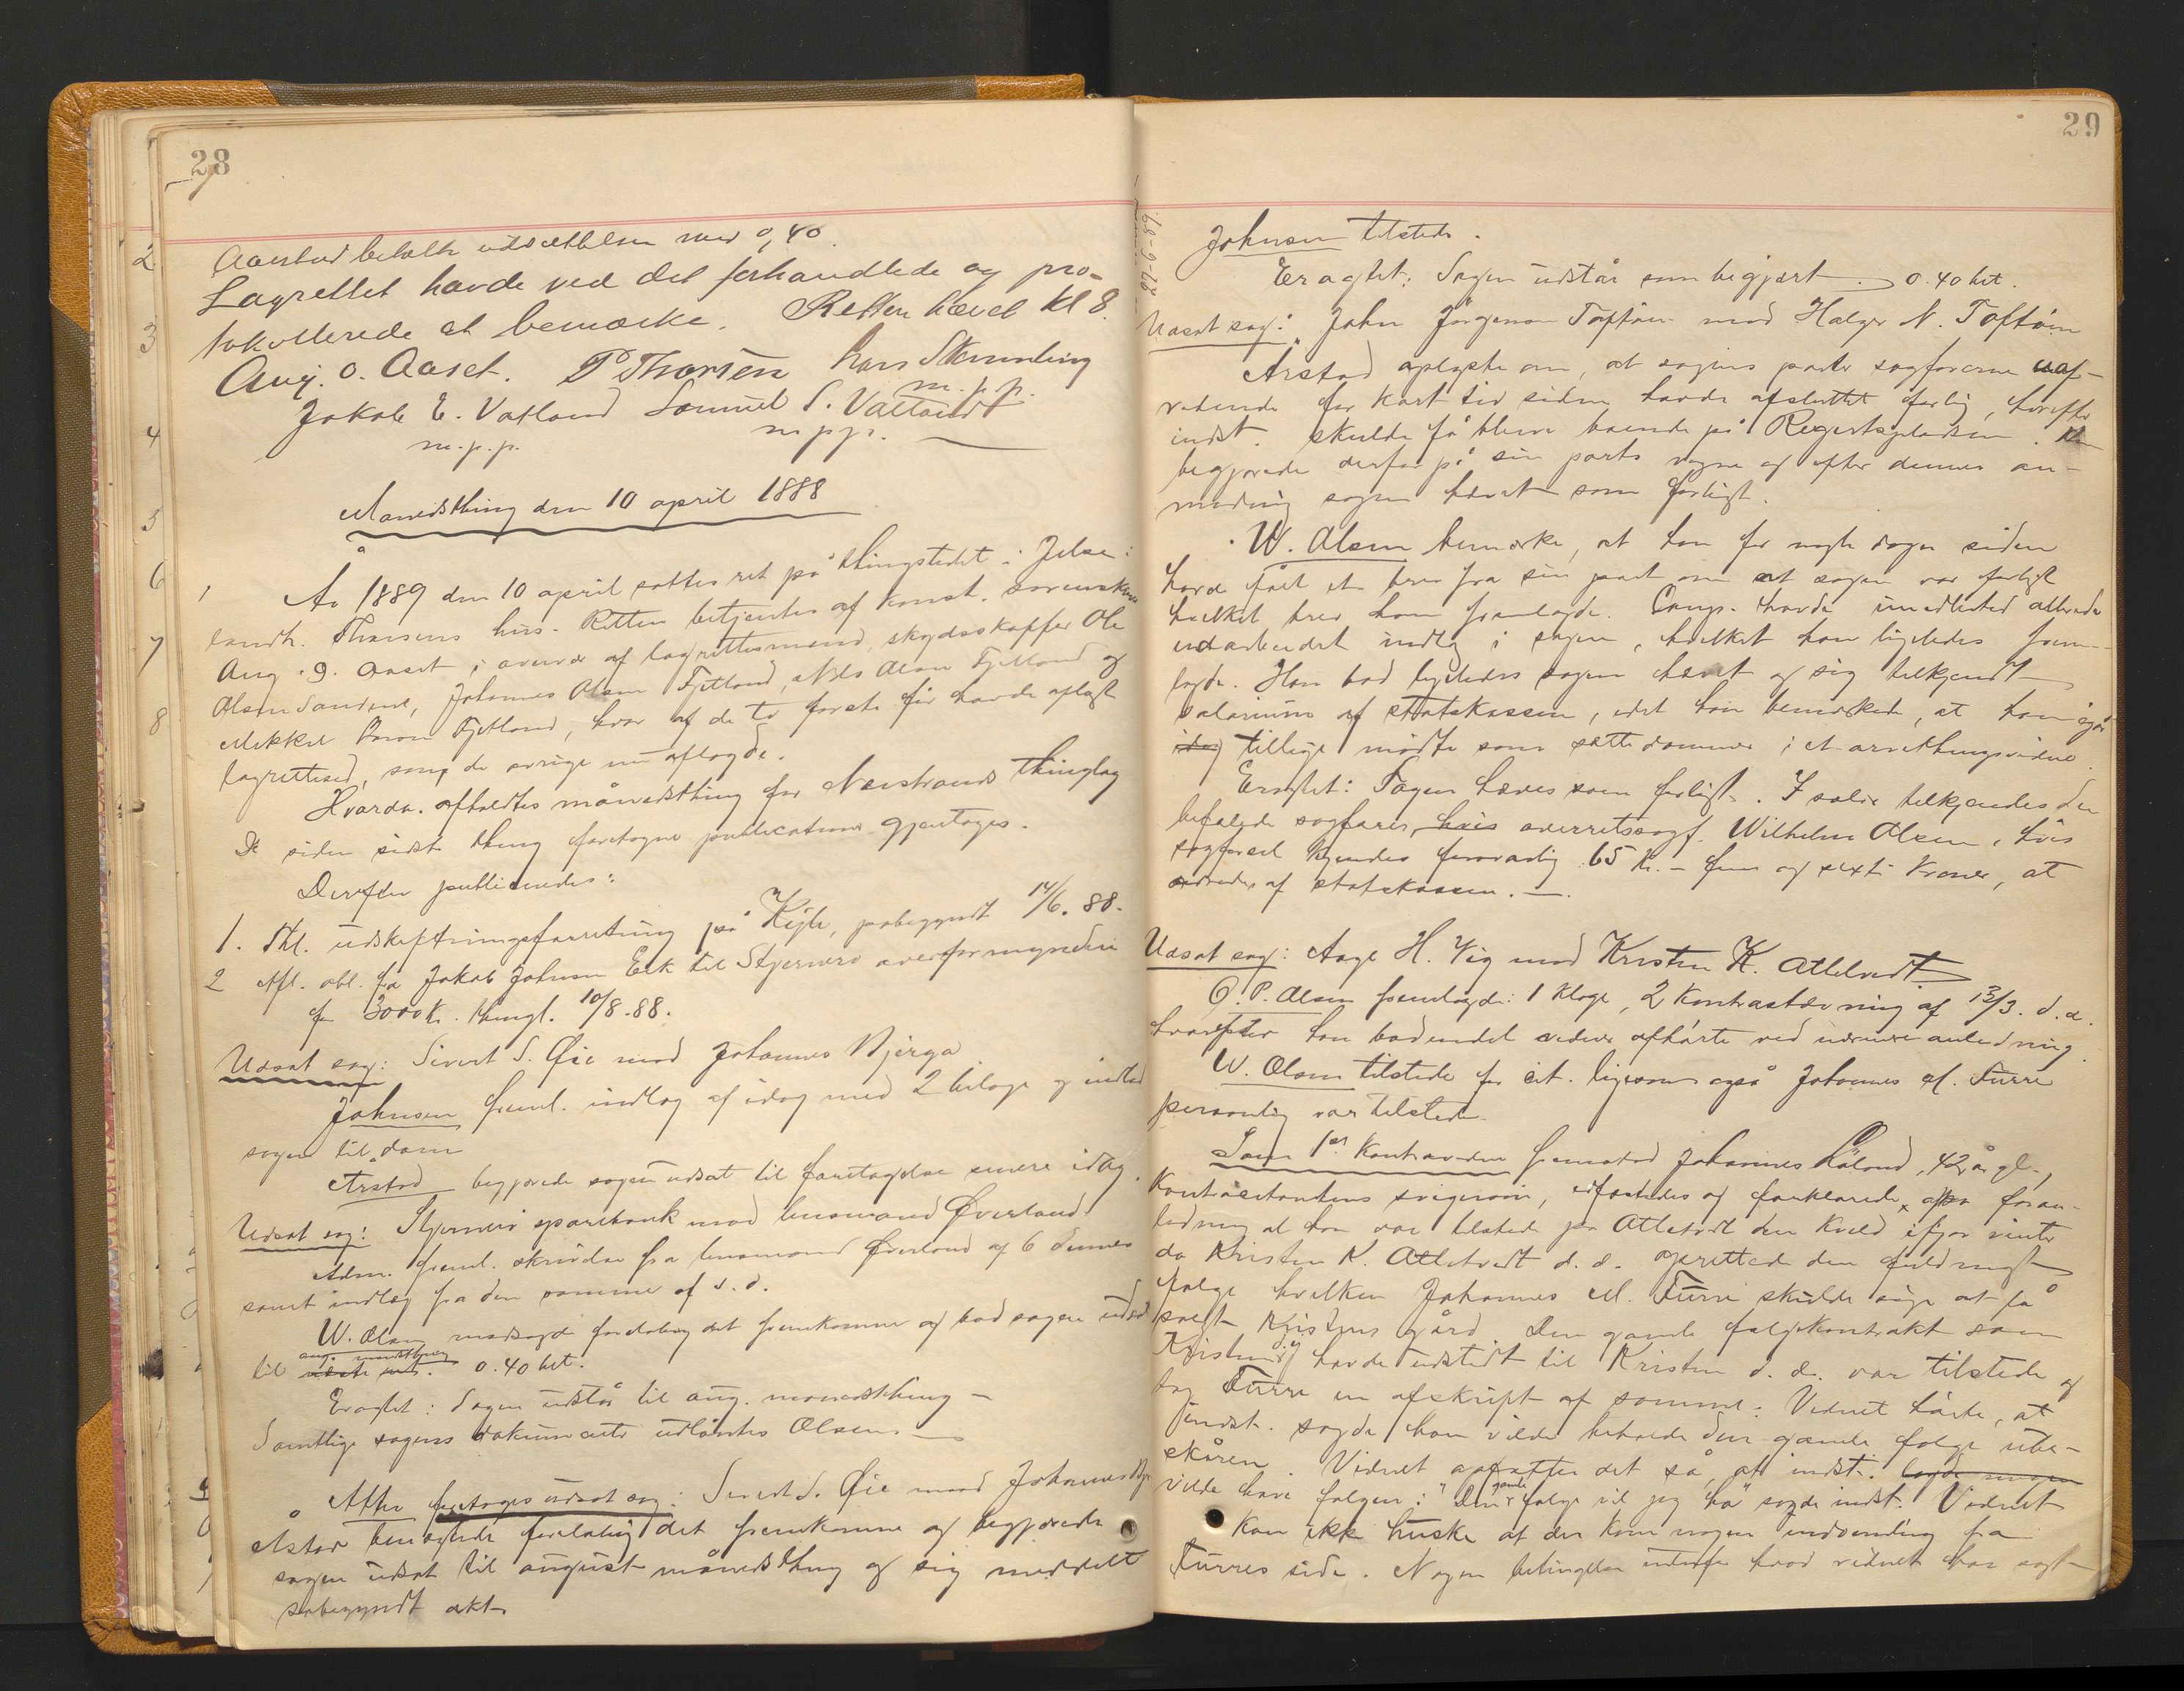 28
Aarstad betalte udsættelsen med 0,40.
Lagrettet havde ved det forhandlede og pro-
tokollerede at bemærke. Retten hævet kl 8.
Aug. O. Aaset. P Thorsen hans
m. p. p.
Jakob E. Vatland Samuel S. Vatland
m. p. p. m p p.
Månedsthing den 10 april 1888
År 1889 den 10 april sattes ret på thingstedet i Jelse i
landh. Thorsens hus. Retten betjentes af konst. sorenskriver
Aug. O. Aaset i overvær af lagrettesmænd, skydsskaffer Ole
Olsen Sandene, Johannes Olsen Fjetland, Nils Olsen Fjetland og
Mikkel Fjetland, hvor af de to første før havde aflagt
lagretteed, som de øvrige nu aflagde.
Hvorda. afholdtes månedsthing for Nerstrands thinglag
De siden sidste thing foretagne publicationer gjentages.
Derefter publiceredes:
1. Thl. udskiftningsforretning på Kigle, påbegyndt 14/6. 88.
2 Afl. obl. fra Jakob Johnsen Eik til Stjernerø overformynderi
for 3000 kr. thingl. 10/8. 88.
Udsat sag: Sivert S. Øie mod Johannes Bjerga
Johnsen freml. indlæg af idag med 2 bilage og indlod
sagen til dom
Årstad begjærede sagen udsat til foretagelse senere idag.
Udsat sag: Stjernerø sparebank mod lensmand Øverland
Adm. freml. skrivelse fra lensmand Øverland af 6 dennes
samt indlæg fra den samme af s. d.
W. Olsen modsagde foreløbig det fremkomne og bad sagen udsat
aug. maanedsthing
til næste mth. 0.40 bet.
Eragtet: Sagen udstår til aug. månedsthing –
Samtlige sagens dokumenter udlåntes Olsen. –
Atter foretages udsat sag: Sivert S. Øie mod Johannes
Årstad benægtede foreløbig det fremkomne og begjærede
sagen udsat til august månedsthing og sig meddelt
påbegyndt akt.
29
Johnsen tilstede.
Eragtet: Sagen udstår som begjært. 0.40 bet.
Udsat sag: John Jörgensen Toftöen mod Helge N. Toftöen
Årstad oplyste om, at sagens parter sagførerne uaf-
vidende for kort tid siden havde afsluttet forlig, hvorefter
indst. skulde få blive boende på Rigertspladsen.
begjærede derfor på sin parts vegne og efter dennes an-
modning sagen hævet som forligt.
W. Olsen bemærke, at han for nogle dager siden
havde fået et brev fra sin part om at sagen var forligt
hvilket brev han fremlagde. Comp. havde imidlertid allerede
udarbeidet indlæg i sagen, hvilket han ligeledes frem-
lagde. Han bad ligeledes sagen hævet og sig tilkjendt
salarium af statskassen, idet han bemærkede, at han
idag tillige mødte som sættedommer i et
Eragtet: Sagen hæves som forligt. I salær tilkjendes den
befalede sagfører, hvis overretssagf. Wilhelm Olsen, hvis
sagførsel kjendes forsvarlig 65 kr. – fem og sexti kroner, at
udredes af statskassen. –
Udsat sag: Aage H. Vig mod Kristen K. Atletvedt
O. P. Olsen fremlagde: 1 klage, 2 kontrastævning af 13/3. d. a.
hvorefter han bad endel vidner afhørte ved nærmere anledning.
W. Olsen tilstede for cit. ligesom også Johannes M. Furre
personlig var tilstede.
Som 1ste kontravidne fremstod Johannes Håland, 42 år gl.,
kontracitantens svigersøn, edfæstedes og forklarede på foran-
ledning at han var tilstede på Atletvedt den kveld ifjor vinter
da Kristen K. Atletvedt d. æ. oprettede den fuldmagt
ifølge hvilken Johannes M. Furre skulde søge at få
solgt Kristens gård. Den gamle følgekontrakt som
Kristen d y havde udstedt til Kristen d. æ. var tilstede og
tog Furre en afskrift af samme. Vidnet hørte, at
indst. sagde han vilde beholde den gamle følge ube-
skåren. Vidnet opfatter det så, at indst.
vilde have følgen: "Den gamle følge vil jeg ha" sagde indst. Vidnet
kan ikke huske at der kom nogen indvending fra
Furres side. Nogen betingelse udenfor hvad vidnet har sagt